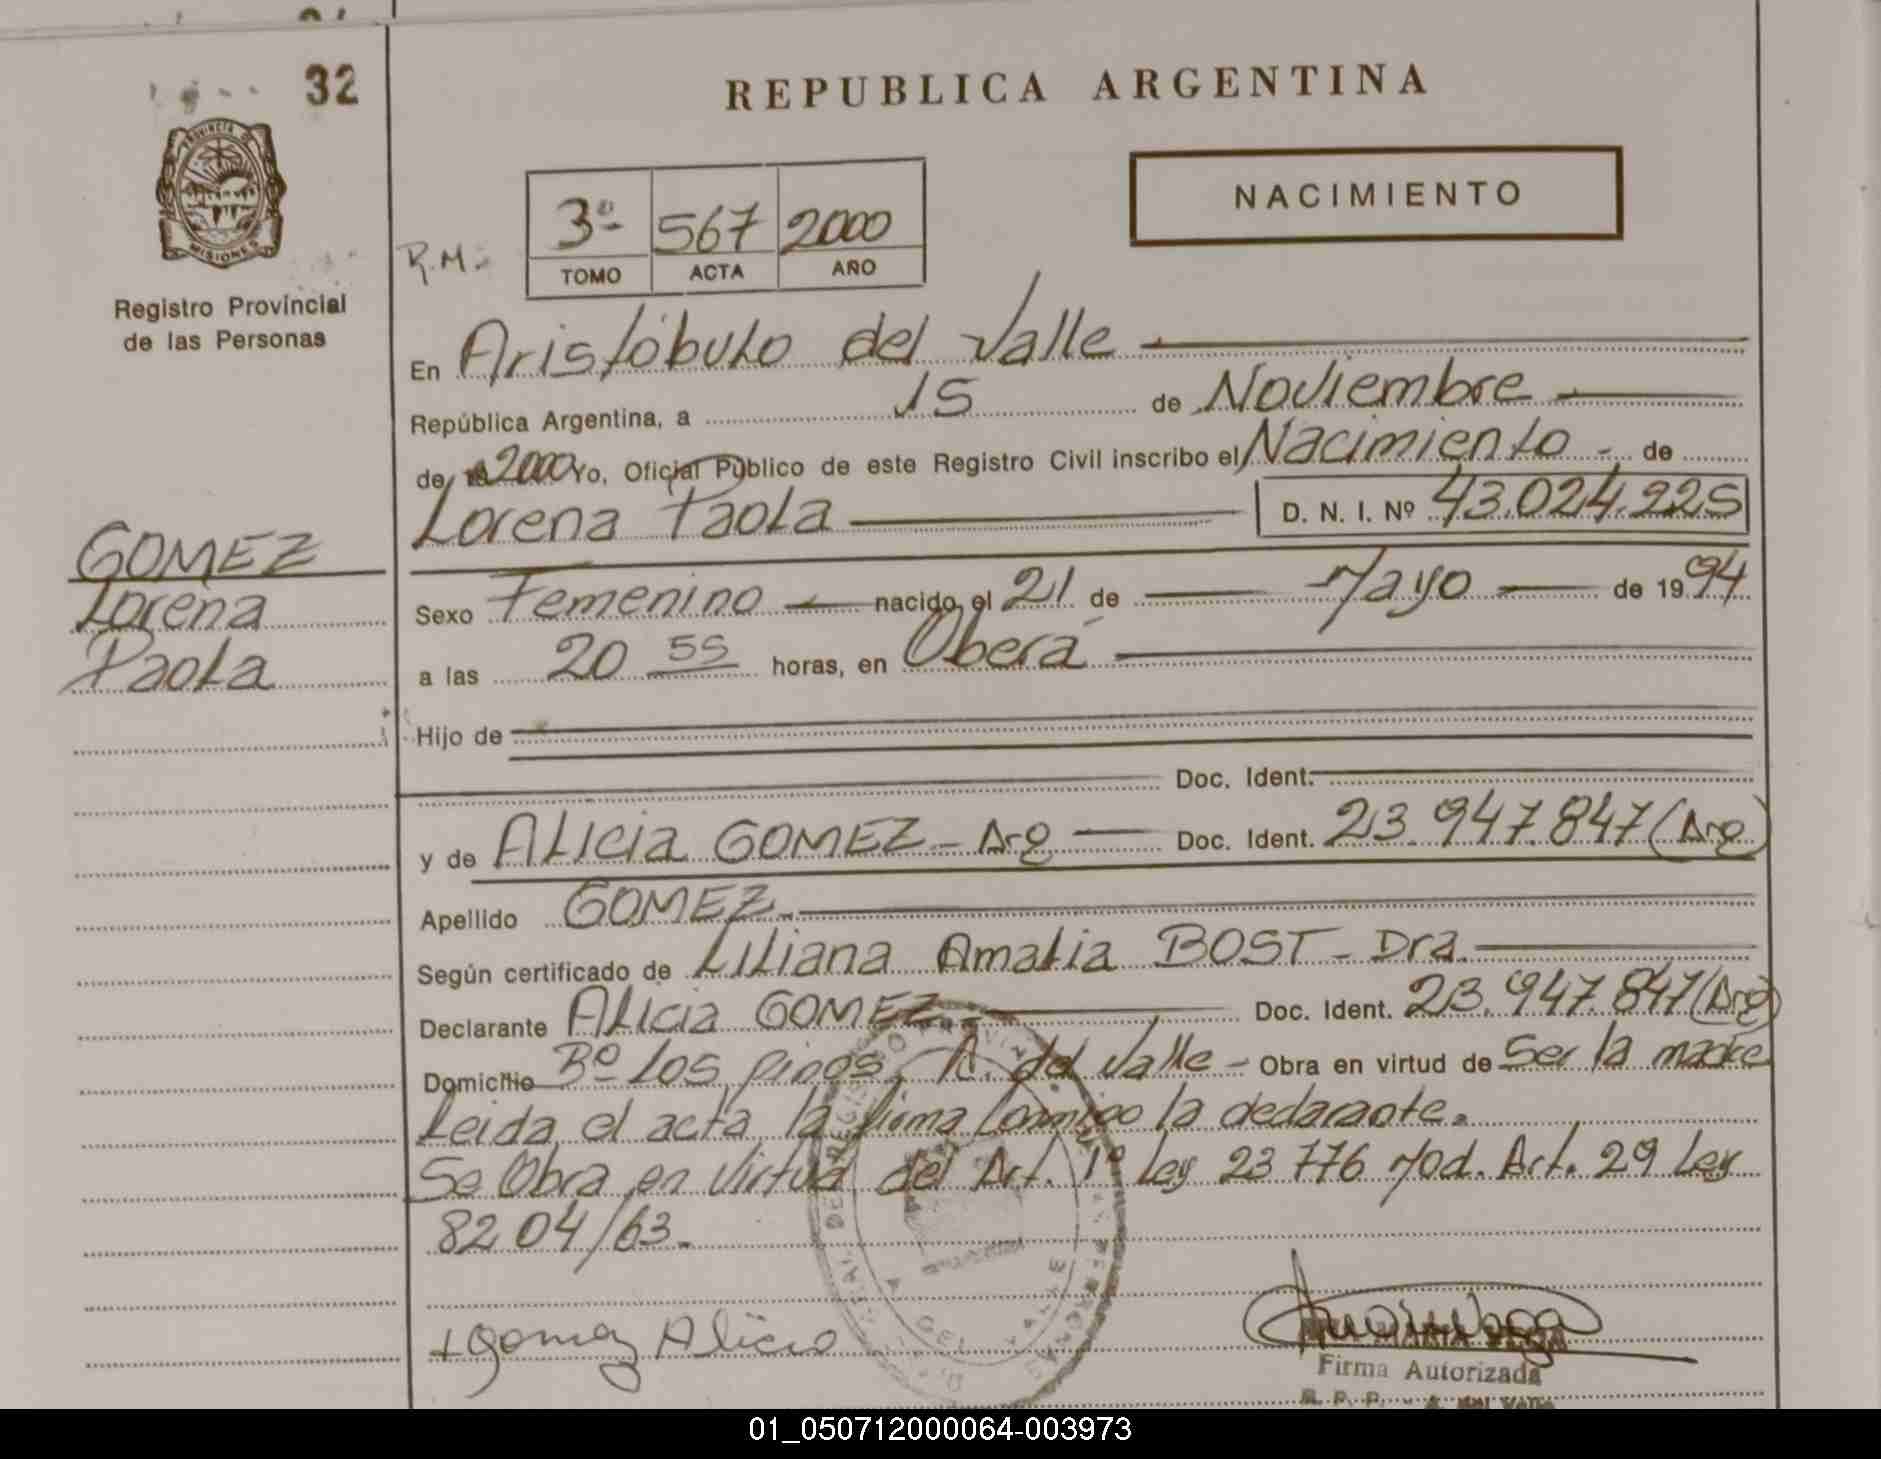 32
REPUBLICA ARGENTINA
PROVINCIA DE
MISIONES
Registro Provincial
de las Personas
NACIMIENTO
R.M.
3º 567 2000
TOMO ACTA AÑO
En Aristóbulo del Valle
República Argentina, a 15 de Noviembre
de 2000 Yo, Oficial Público de este Registro Civil inscribo el Nacimiento de
Lorena Paola D. N. I. Nº 43.024.225
GOMEZ
Lorena
Paola
Sexo Femenino nacido el 21 de Mayo de 1994
a las 20 55 horas, en Oberá
Hijo de
Doc. Ident.
y de Alicia GOMEZ - Arg Doc. Ident. 23.947.847 (Arg)
Apellido GOMEZ.
Según certificado de Liliana Amalia BOST - Dra.
Declarante Alicia GOMEZ Doc. Ident. 23.947.847 (Arg)
Domicilio Bº Los pinos, A. del Valle - Obra en virtud de Ser la madre
Leida el acta la firma conmigo la declarante.
Se Obra en virtud del Art. 1º Ley 23 776 Mod. Art. 29 Ley
82 04/63.
Gomez Alicia
MARIA
Firma Autorizada
R. P. P. - A. del Valle
01_050712000064-003973